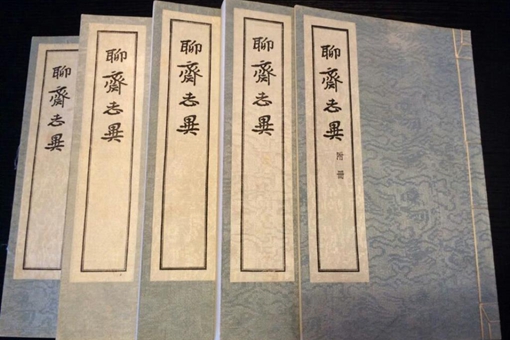 聊齋志異
聊齋志異
聊齋志異
聊齋志異
聊齋志異
附冊